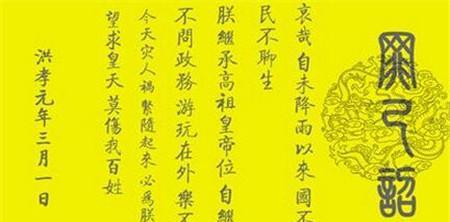 罪己詔
哀哉自未降雨以來國不
民不聊生
朕繼承高祖皇帝位自繼
不問政務游玩在外樂不
今天灾人禍緊隨起來必為朕
望求皇天莫傷我百姓
洪孝元年三月一日